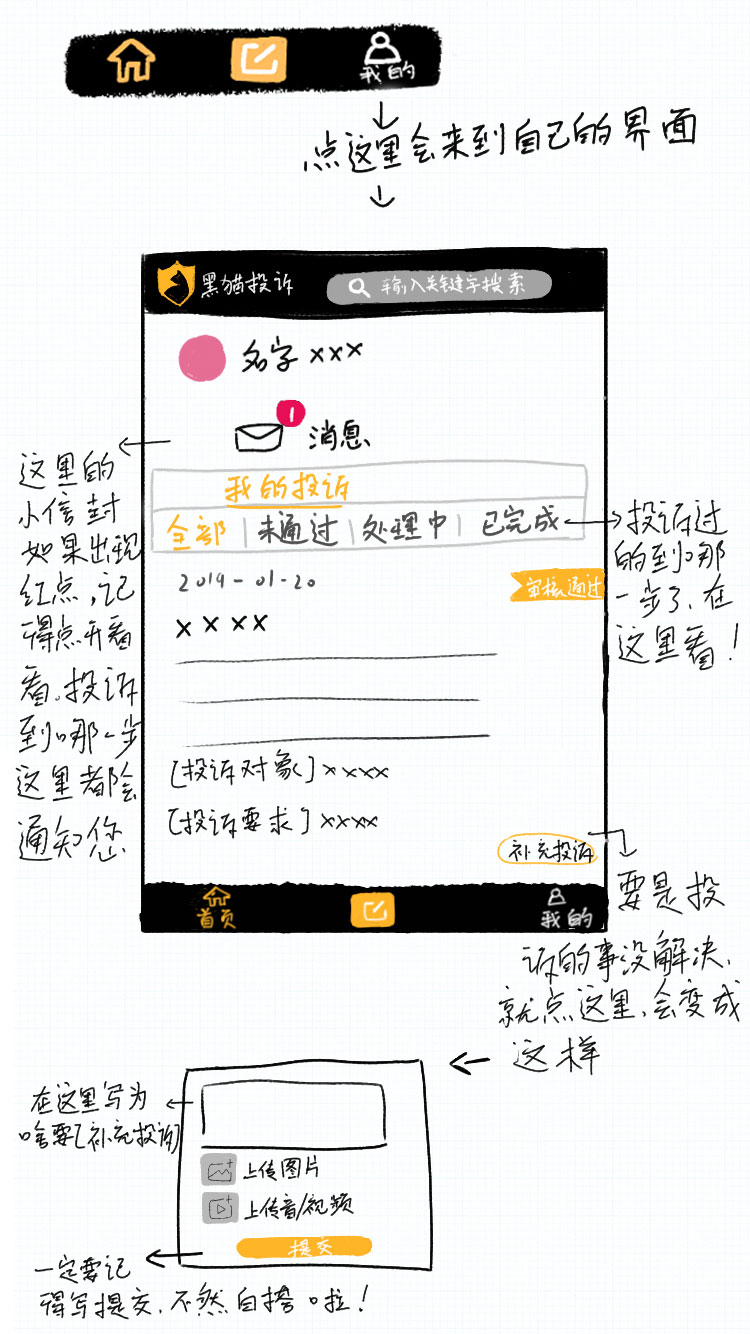 我的
点这里会来到自己的界面
黑猫投诉
输入关键字搜索
名字 xxx
1
消息
这里的
小信封
如果出现
红点,记
得点开看
看。投诉
到哪一步
这里都会
通知您
我的投诉
全部 | 未通过 | 处理中 | 已完成
投诉过
的到哪
一步了,在
这里看!
2019-01-20
审核通过
xxxx
[投诉对象]xxxx
[投诉要求]xxxx
补充投诉
首页
我的
要是投
诉的事没解决,
就点这里,会变成
这样
在这里写为
啥要[补充投诉]
上传图片
上传音/视频
提交
一定要记
得写提交,不然白搭啦!